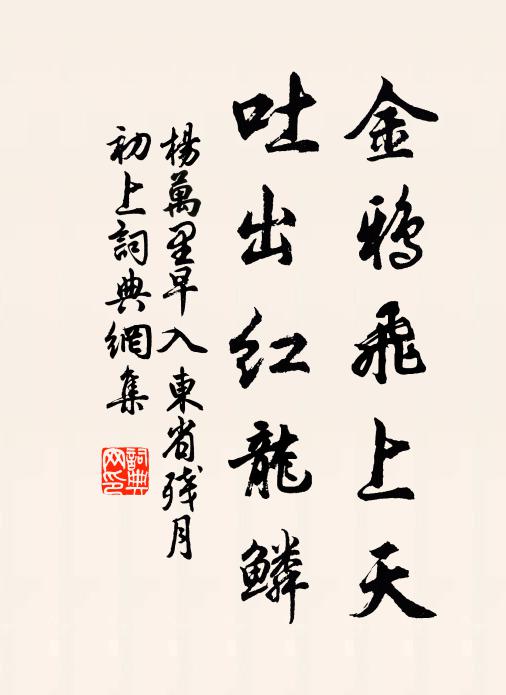 金鴉飛上天
吐出紅龍鱗
楊萬里早入東省殘月
初上詞典網集
詞典
网印